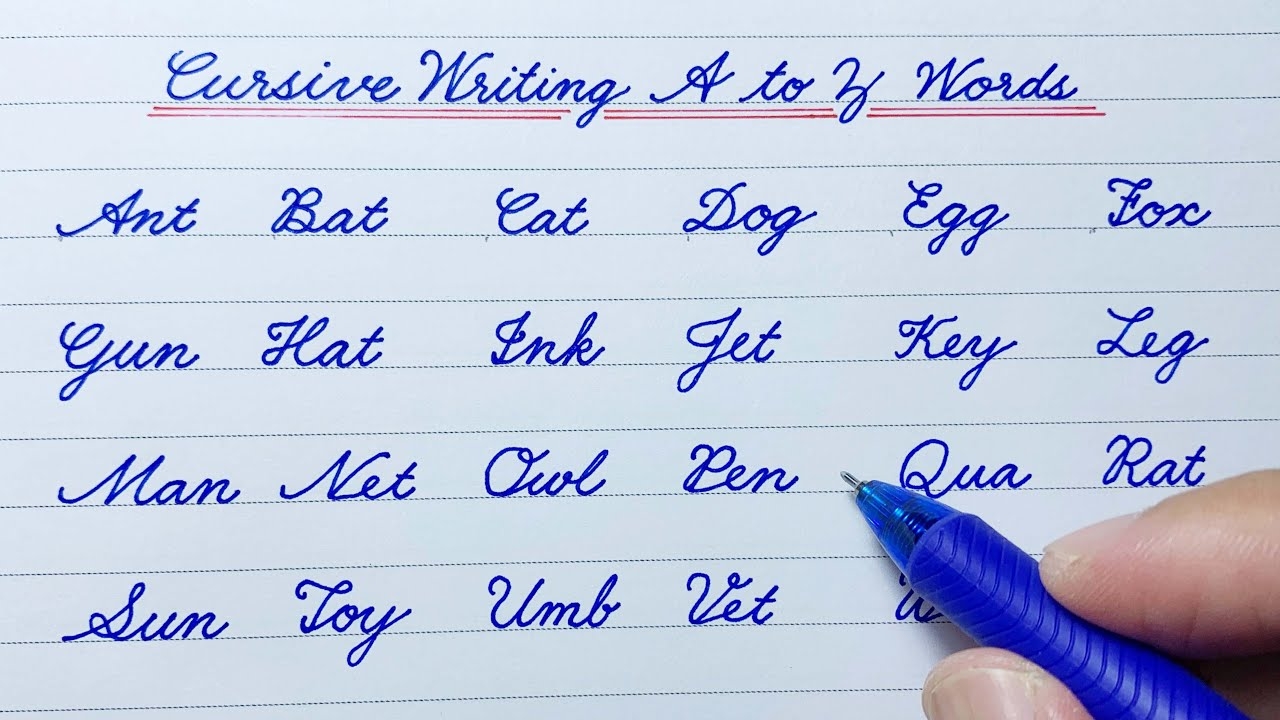 Cursive Writing A to Z Words
Ant Bat Cat Dog Egg Fox
Gun Hat Ink Jet Key Leg
Man Net Owl Pen Qua Rat
Sun Toy Umb Vet